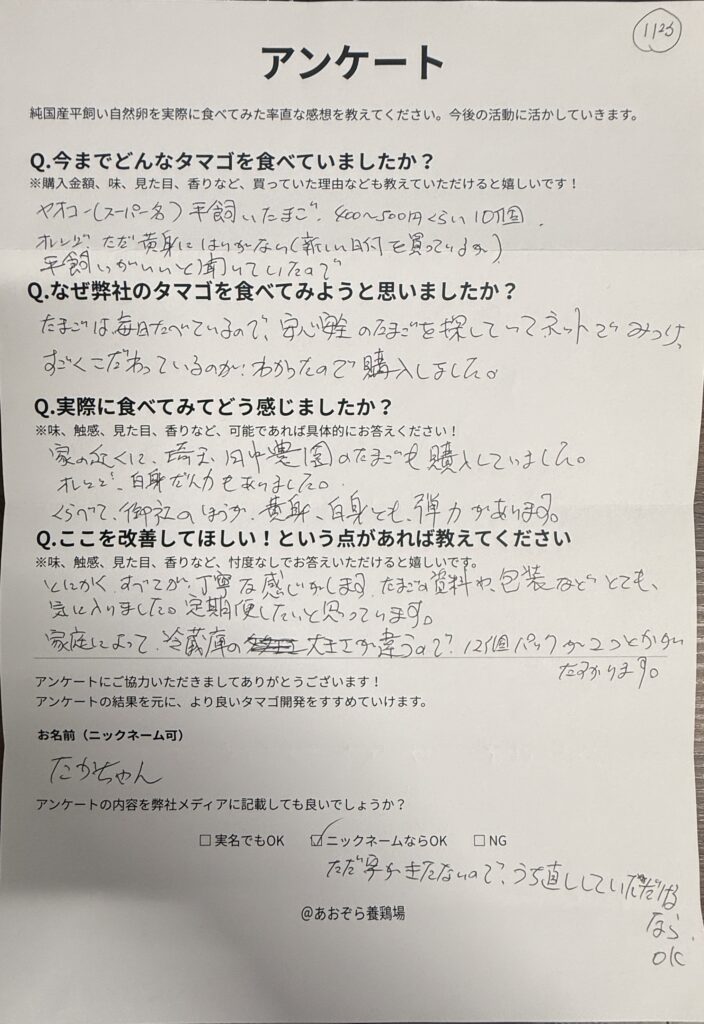 1125
アンケート
純国産平飼い自然卵を実際に食べてみた率直な感想を教えてください。今後の活動に活かしていきます。
Q.今までどんなタマゴを食べていましたか？
※購入金額、味、見た目、香りなど、買っていた理由なども教えていただけると嬉しいです！
ヤオコー(スーパー名)平飼いたまご、400〜500円くらい10個、
オレンジ、ただ黄身にはりがない(新しい日付を買っているが)
平飼いがいいと聞いていたので
Q.なぜ弊社のタマゴを食べてみようと思いましたか？
たまごは毎日たべているので、安心安全のたまごを探していてネットでみつけ、
すごくこだわっているのが、わかったので購入しました。
Q.実際に食べてみてどう感じましたか？
※味、触感、見た目、香りなど、可能であれば具体的にお答えください！
家の近くに、埼玉、田中農園のたまごも購入していました。
オレンジ、白身だん力もありました。
くらべて、御社のほうが、黄身、白身とも、弾力があります。
Q.ここを改善してほしい！という点があれば教えてください
※味、触感、見た目、香りなど、忖度なしでお答えいただけると嬉しいです。
とにかく、すべてが、丁寧な感じがします。たまごの資料や、包装などとても、
気に入りました。定期便したいと思っています。
家庭によって、冷蔵庫の大きさが違うので、12個パックが2つとかがい
たすかります。
アンケートにご協力いただきましてありがとうございます！
アンケートの結果を元に、より良いタマゴ開発をすすめていけます。
お名前（ニックネーム可）
たかちゃん
アンケートの内容を弊社メディアに記載しても良いでしょうか？
□ 実名でもOK ☑ ニックネームならOK □ NG
ただ字がきたないので、うち直ししていただける
なら、
OK
@あおぞら養鶏場